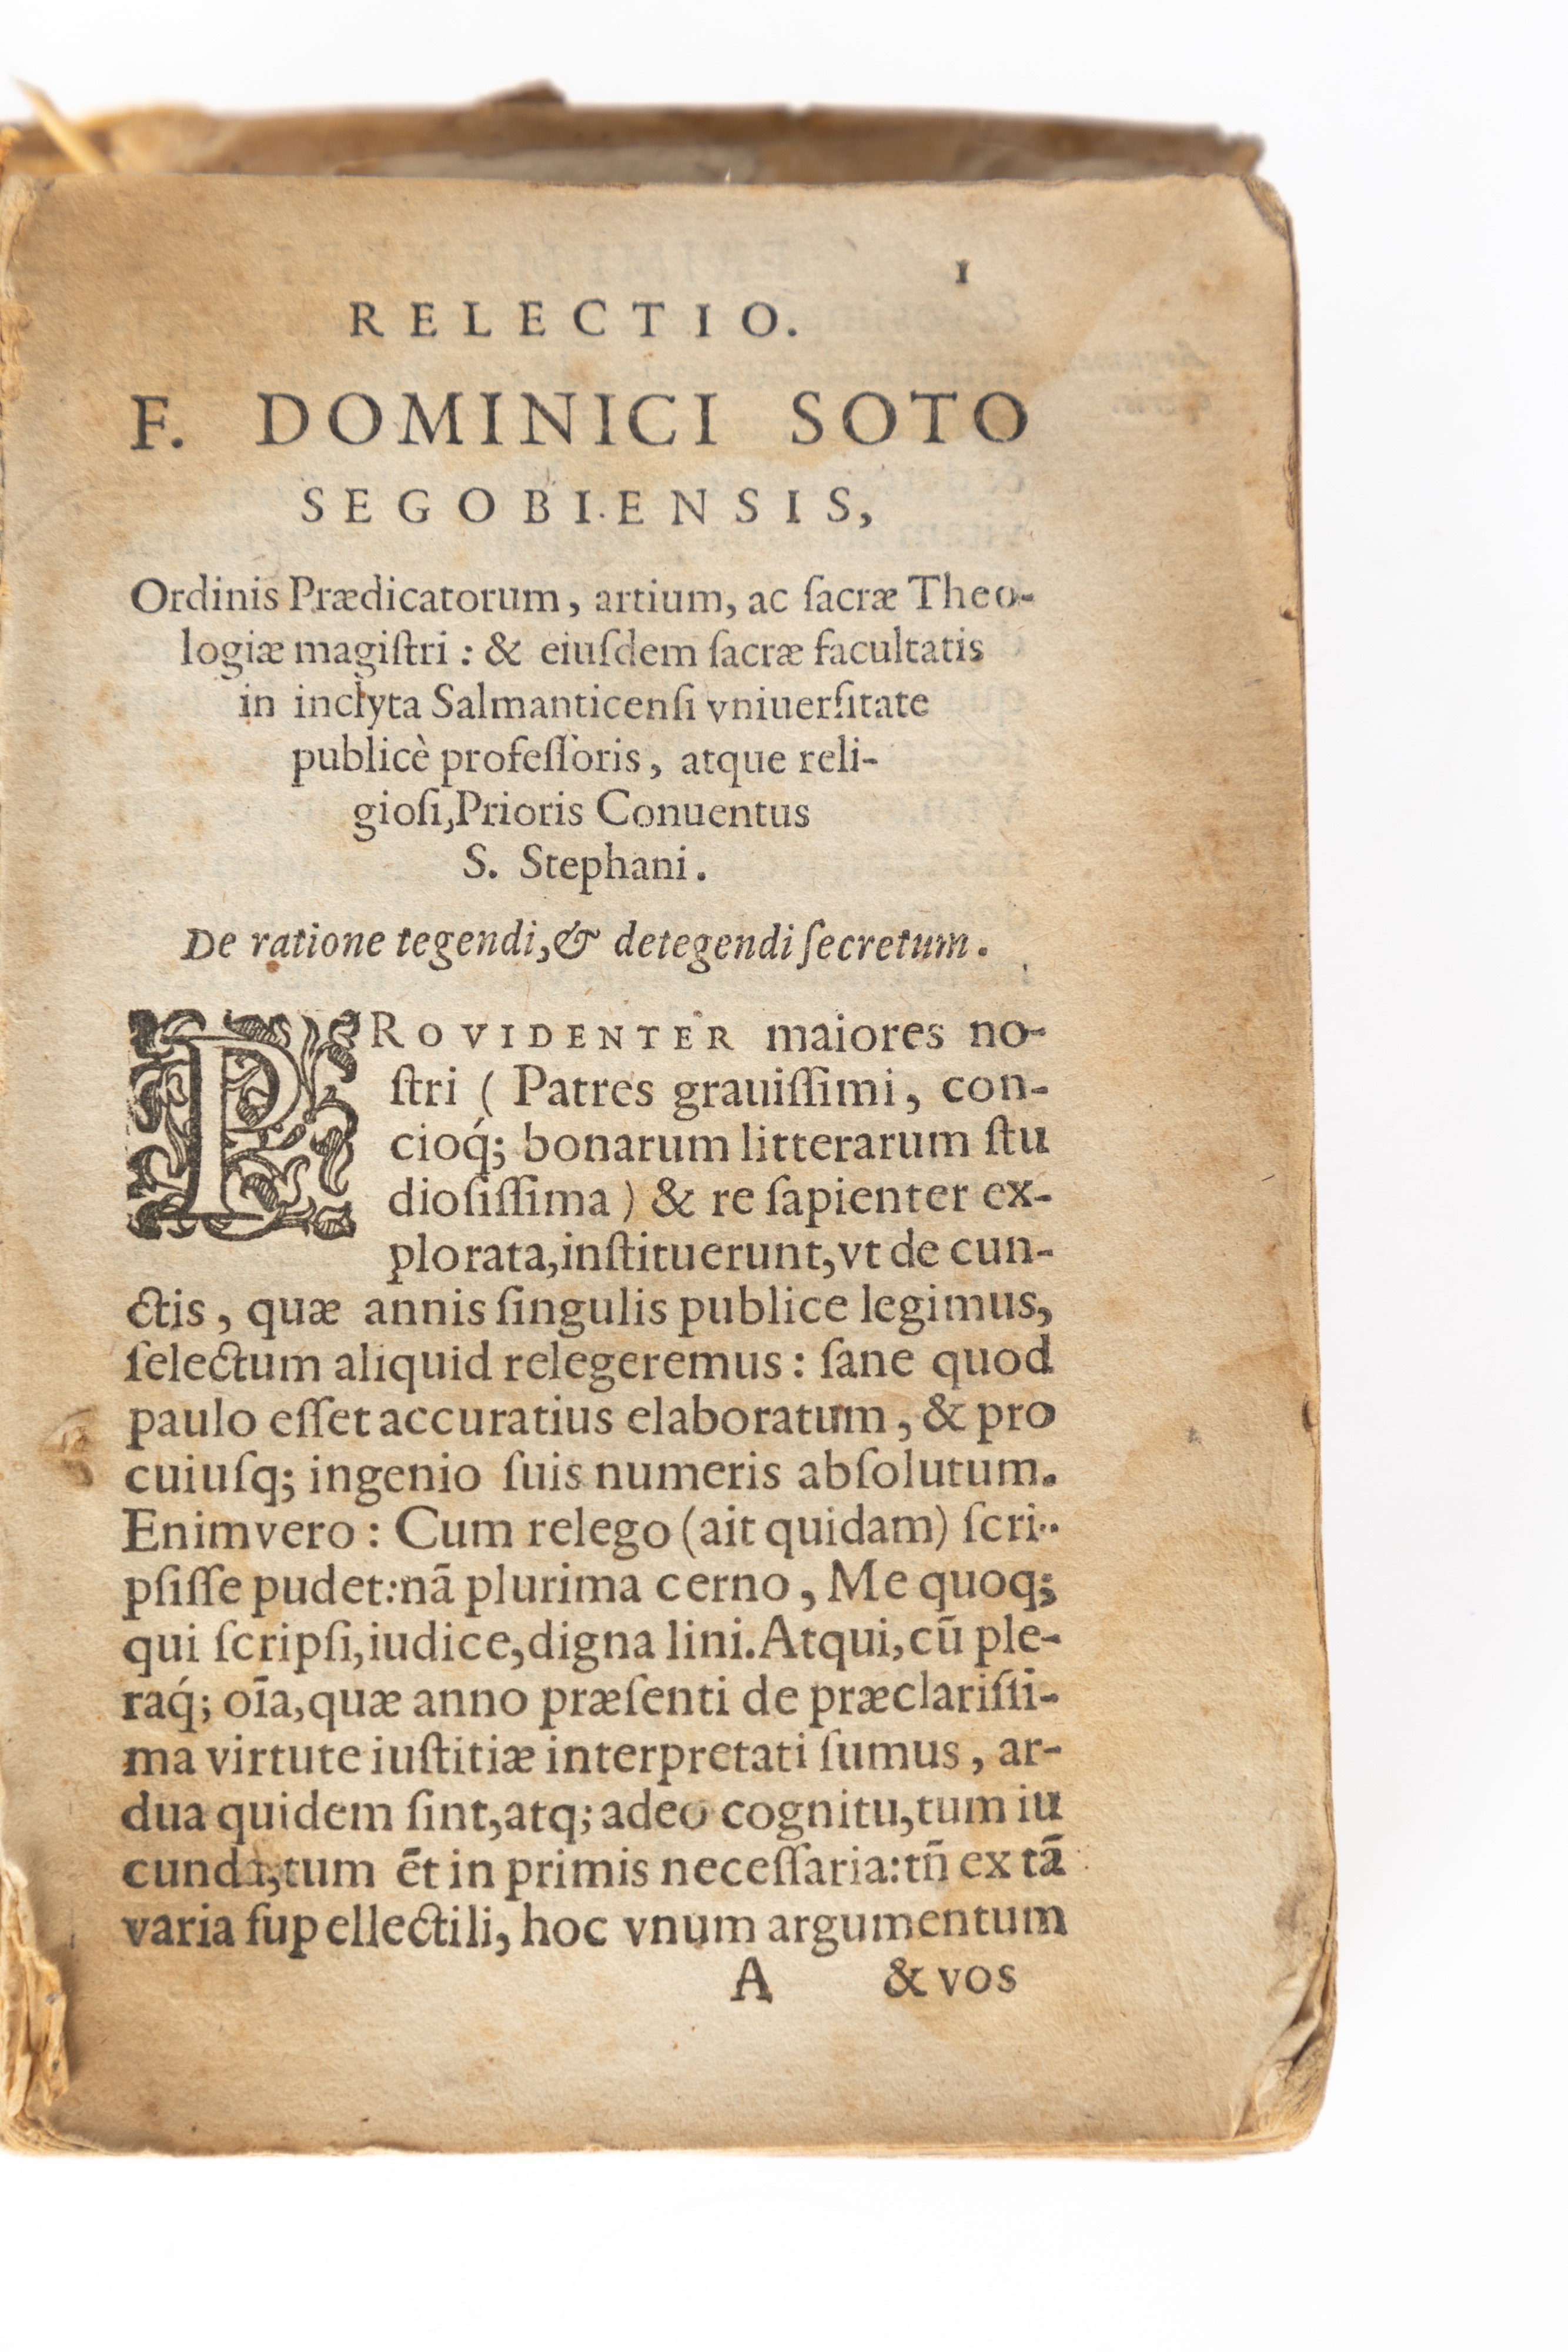 1
RELECTIO.
F. DOMINICI SOTO
SEGOBIENSIS,
Ordinis Prædicatorum, artium, ac ſacræ Theo-
logiæ magiſtri : & eiuſdem ſacræ facultatis
in inclyta Salmanticenſi vniuerſitate
publicè profeſſoris, atque reli-
gioſi,Prioris Conuentus
S. Stephani.
De ratione tegendi,& detegendi ſecretum.
PROVIDENTER maiores no-
ſtri ( Patres grauiſſimi, con-
cioq́; bonarum litterarum ſtu
dioſiſſima ) & re ſapienter ex-
plorata,inſtituerunt,vt de cun-
ctis, quæ annis ſingulis publice legimus,
ſelectum aliquid relegeremus : ſane quod
paulo eſſet accuratius elaboratum, & pro
cuiuſq; ingenio ſuis numeris abſolutum.
Enimvero : Cum relego (ait quidam) ſcri-
pſiſſe pudet:nã plurima cerno, Me quoq;
qui ſcripſi,iudice,digna lini.Atqui,cũ ple-
raq́; oĩa,quæ anno præſenti de præclariſſi-
ma virtute iuſtitiæ interpretati ſumus, ar-
dua quidem ſint,atq; adeo cognitu,tum iu
cunda,tum ẽt in primis neceſſaria:tñ ex tã
varia ſupellectili, hoc vnum argumentum
A & vos